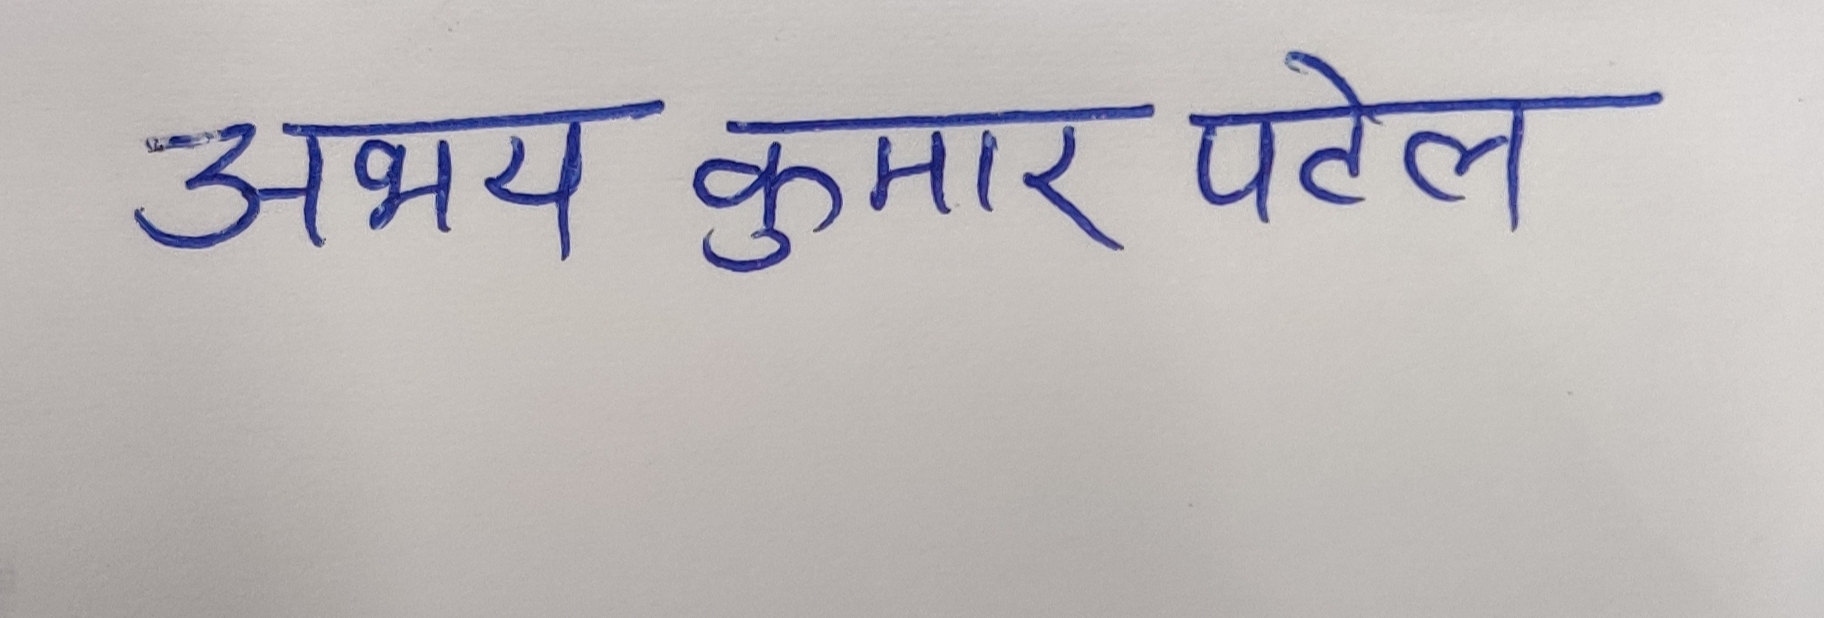 अभय कुमार पटेल